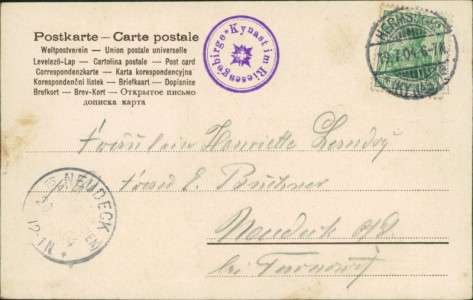 Postkarte — Carte postale
Weltpostverein — Union postale universelle
Levelező-Lap — Cartolina postale — Post card
Correspondenzkarte — Karta korespondencyjna
Korespondenční listek — Briefkaart — Dopisnice
Brefkort — Brev-Kort — Открытое письмо
дописка карта
Kynast im Riesengebirge
HERMSDORF
(KYNAST)
Fräulein Henriette
p. Adr. Frau E. Büchner
Neudeck O/S.
bei Tarnowitz
NEUDECK
12-1N